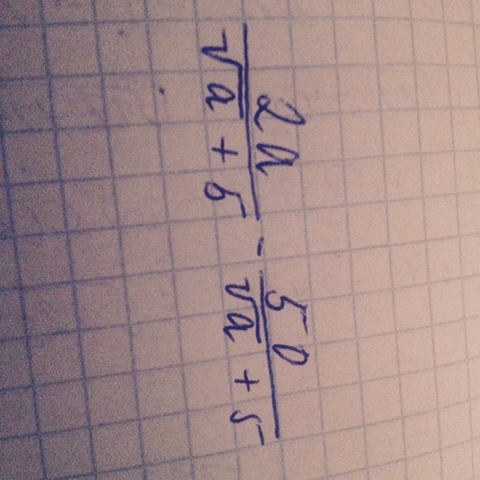 2a/(√a + 5) - 50/(√a + 5)